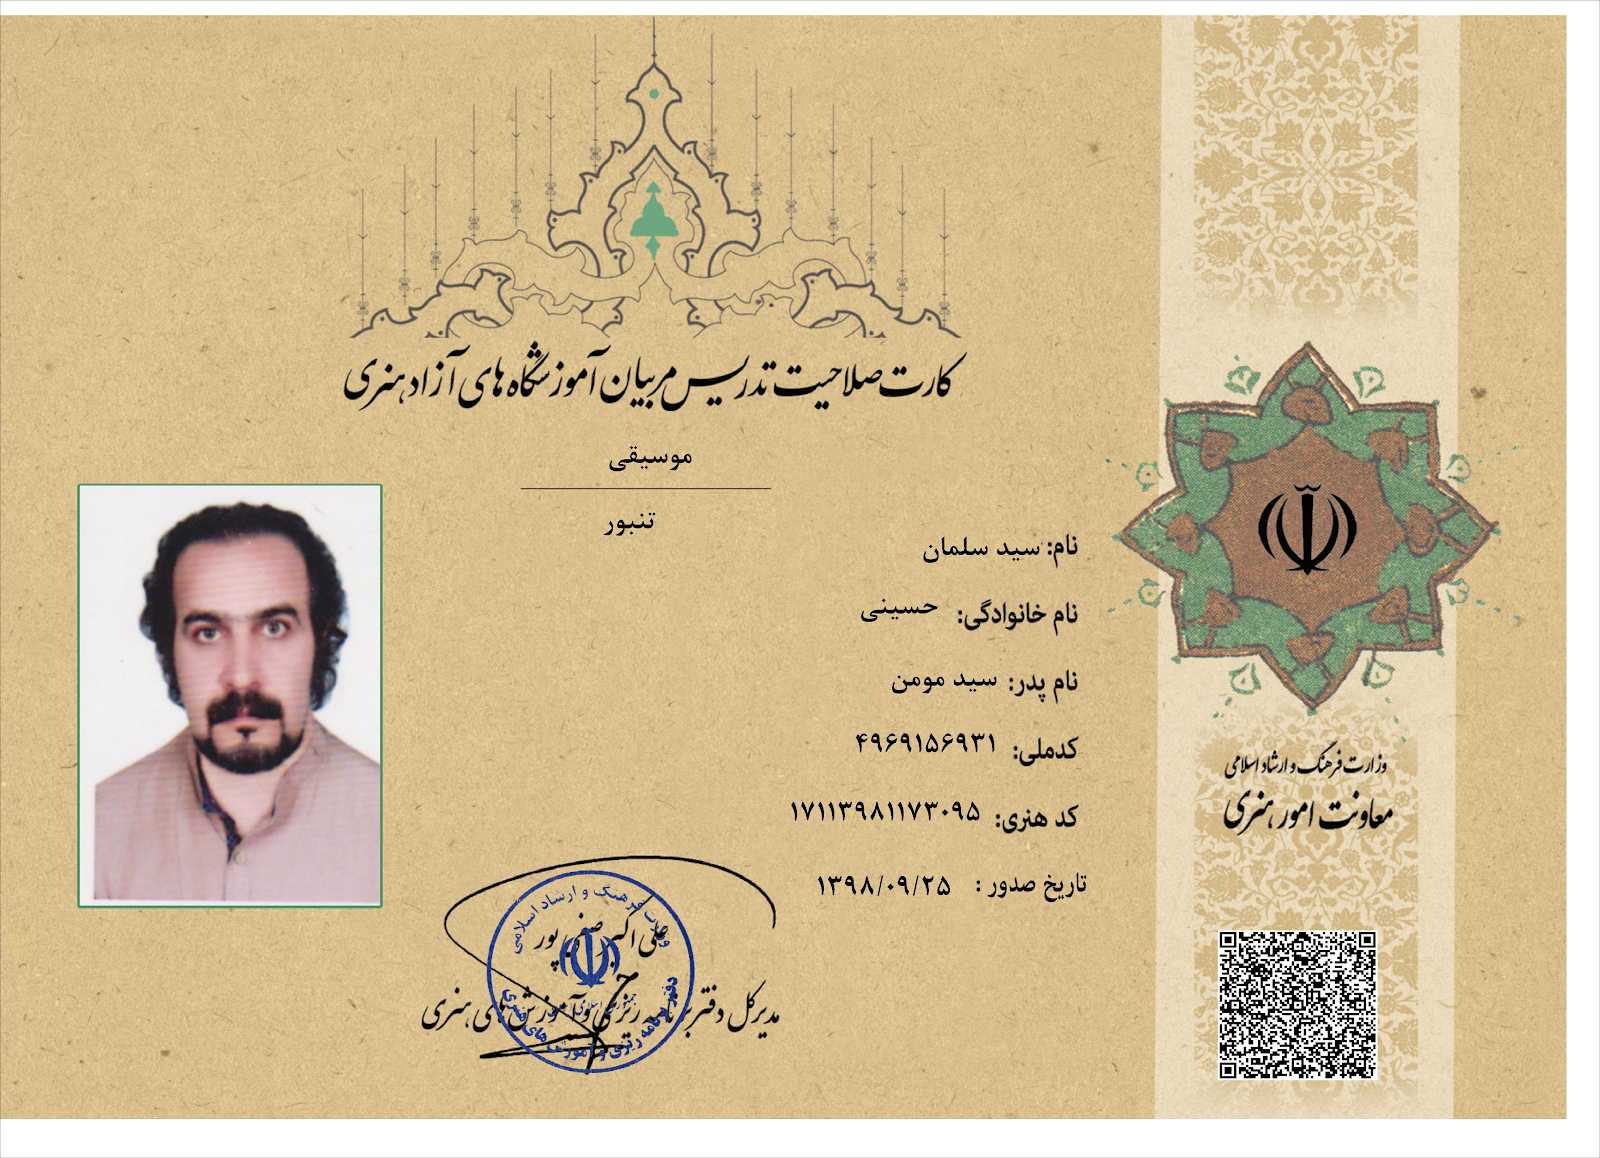 کارت صلاحیت تدریس مربیان آموزشگاه های آزاد هنری
موسیقی
تنبور
نام: سید سلمان
نام خانوادگی: حسینی
نام پدر: سید مومن
کدملی: ۴۹۶۹۱۵۶۹۳۱
کد هنری: ۱۷۱۱۳۹۸۱۱۷۳۰۹۵
تاریخ صدور : ۱۳۹۸/۰۹/۲۵
وزارت فرهنگ و ارشاد اسلامی
معاونت امور هنری
علی اکبر صفی پور
مدیرکل دفتر برنامه ریزی و آموزش های هنری
وزارت فرهنگ و ارشاد اسلامی
جمهوری اسلامی
دفتر برنامه ریزی و آموزش های هنری